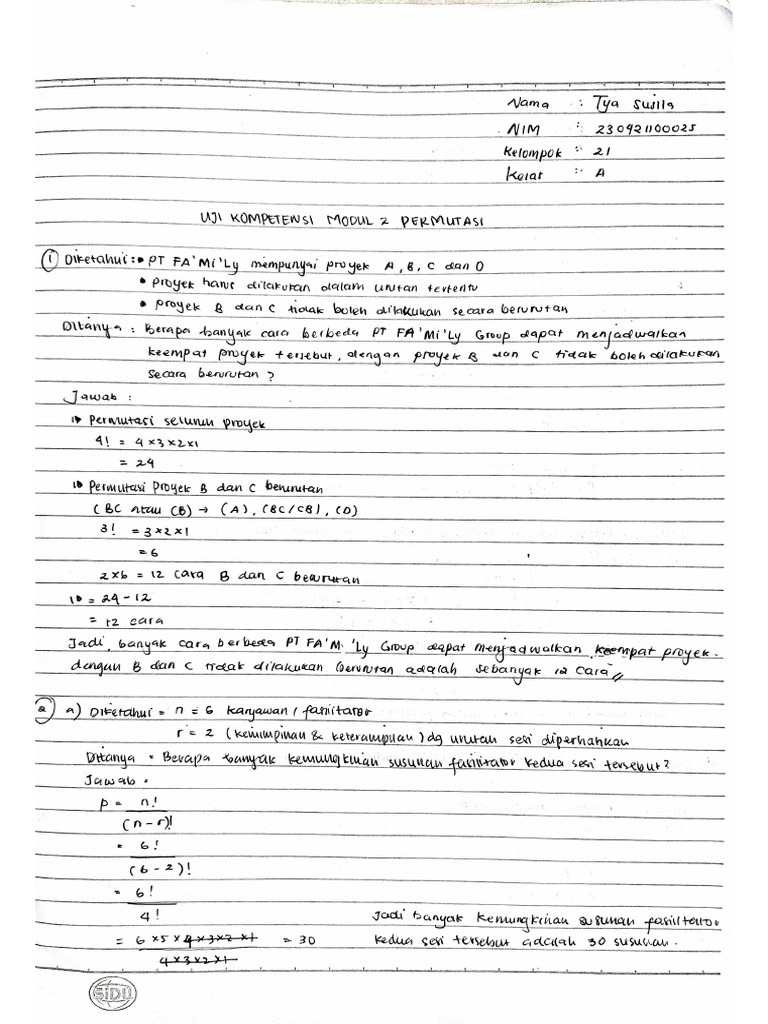 Nama : Tya Susila
NIM : 230921100025
Kelompok : 21
Kelas : A
UJI KOMPETENSI MODUL 2 PERMUTASI
① Diketahui : • PT FA'Mi'Ly mempunyai proyek A, B, C dan D
• proyek harus dilakukan dalam urutan tertentu
• proyek B dan C tidak boleh dilakukan secara berurutan
Ditanya : Berapa banyak cara berbeda PT FA'Mi'Ly Group dapat menjadwalkan
keempat proyek tersebut, dengan proyek B dan C tidak boleh dilakukan
secara berurutan ?
Jawab :
Permutasi seluruh proyek
4! = 4×3×2×1
= 24
Permutasi Proyek B dan C berurutan
(BC atau CB) → (A), (BC/CB), (D)
3! = 3×2×1
= 6
2×6 = 12 cara B dan C berurutan
= 24-12
= 12 cara
Jadi, banyak cara berbeda PT FA'Mi'Ly Group dapat menjadwalkan keempat proyek
dengan B dan C tidak dilakukan berurutan adalah sebanyak 12 cara //
② a) Diketahui = n = 6 karyawan / fasilitator
r = 2 (kemimpinan & keterampilan) dg urutan sesi diperhatikan
Ditanya = Berapa banyak kemungkinan susunan fasilitator kedua sesi tersebut?
Jawab =
P = n!
(n-r)!
= 6!
(6-2)!
= 6!
4! Jadi banyak kemungkinan susunan fasilitator
= 6×5×4×3×2×1 = 30 kedua sesi tersebut adalah 30 susunan.
4×3×2×1
SIDU